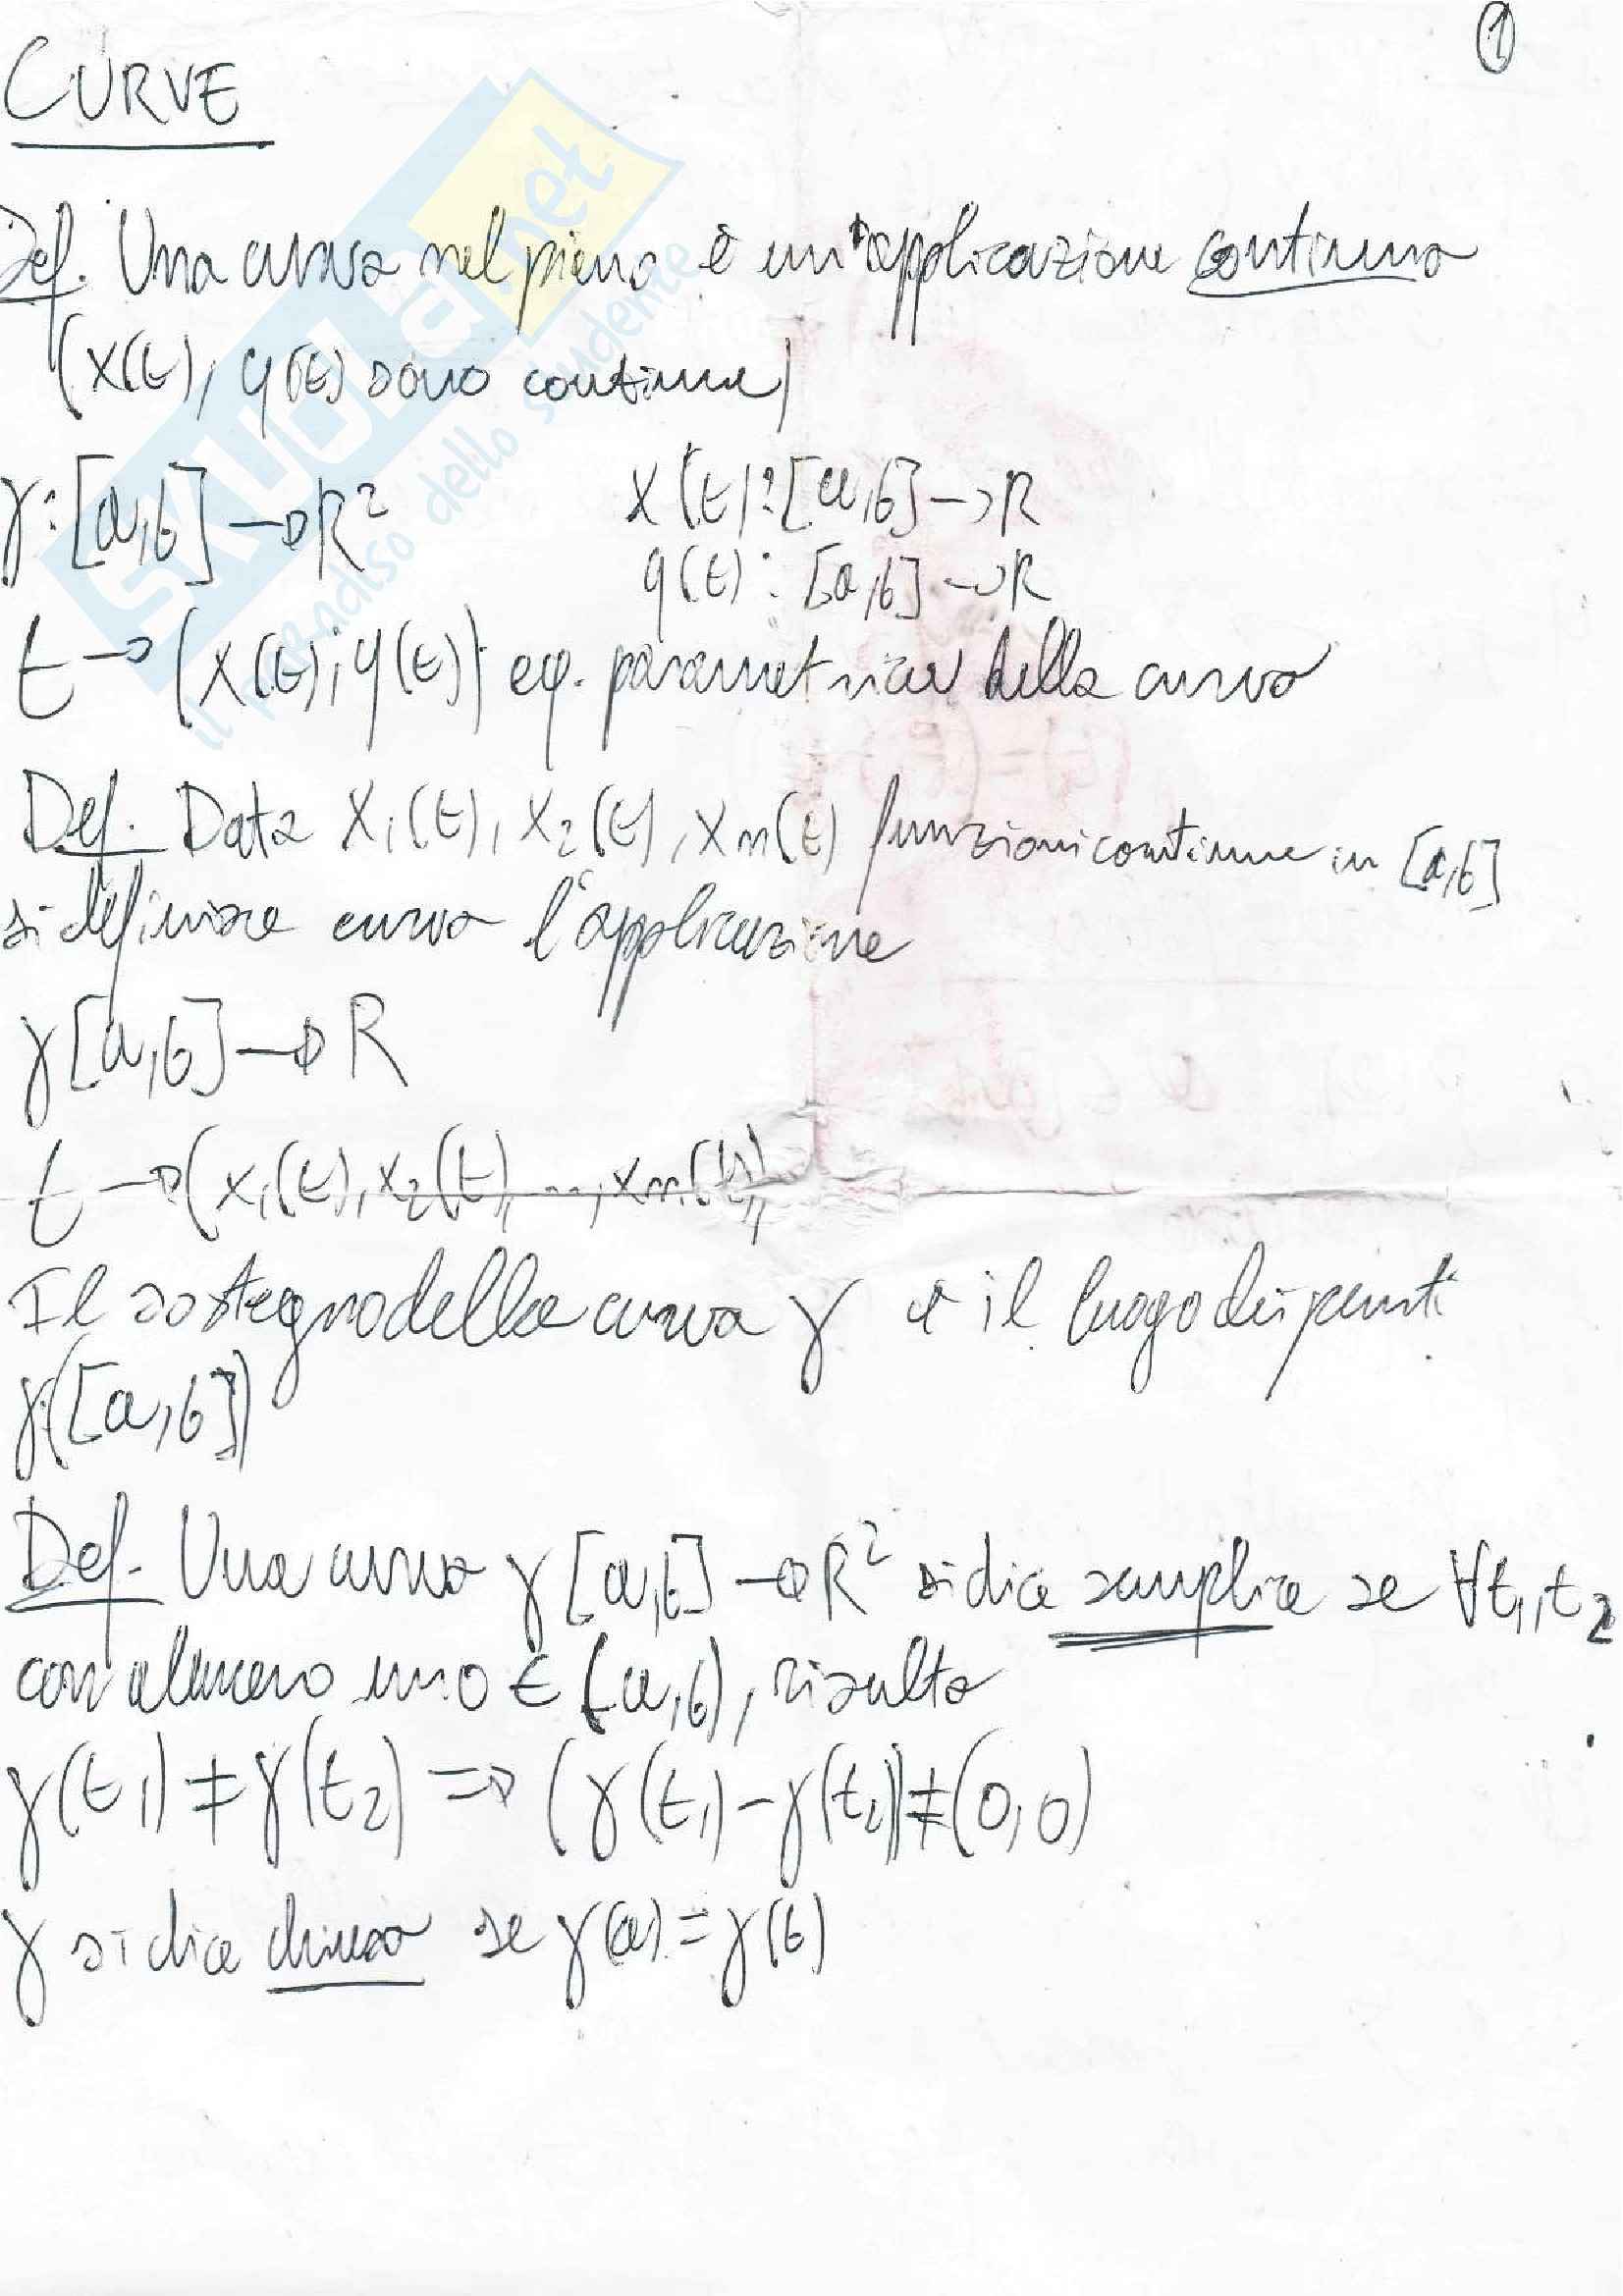 ①
CURVE
Def. Una curva nel piano è un'applicazione continua
(x(t), y(t) sono continue)
γ: [a,b] → R²
x(t): [a,b] → R
y(t): [a,b] → R
t → (x(t); y(t)) eq. parametrica della curva
Def. Data x₁(t), x₂(t), xn(t) funzioni continue in [a,b]
si definisce curva l'applicazione
γ [a,b] → R
t → (x₁(t), x₂(t), ..., xn(t))
Il sostegno della curva γ è il luogo dei punti
γ([a,b])
Def. Una curva γ [a,b] → R² si dice semplice se ∀t₁,t₂
con almeno uno ∈ (a,b), risulta
γ(t₁) ≠ γ(t₂) ⇒ (γ(t₁) - γ(t₂)) ≠ (0,0)
γ si dice chiusa se γ(a) = γ(b)
SKUOLA.net
il paradiso dello studente